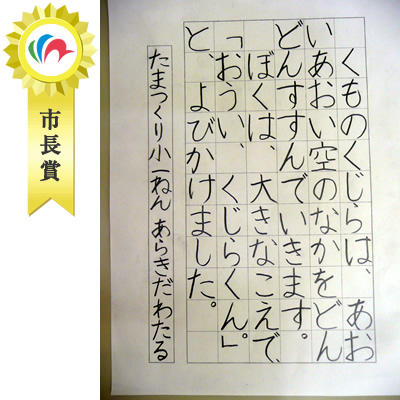 市長賞
くものくじらは、あお
いあおい空のなかをどん
どんすすんでいきます。
ぼくは、大きなこえで、
「おうい、くじらくん。」
と、よびかけました。
たまつくり小一ねん あらきだ わたる